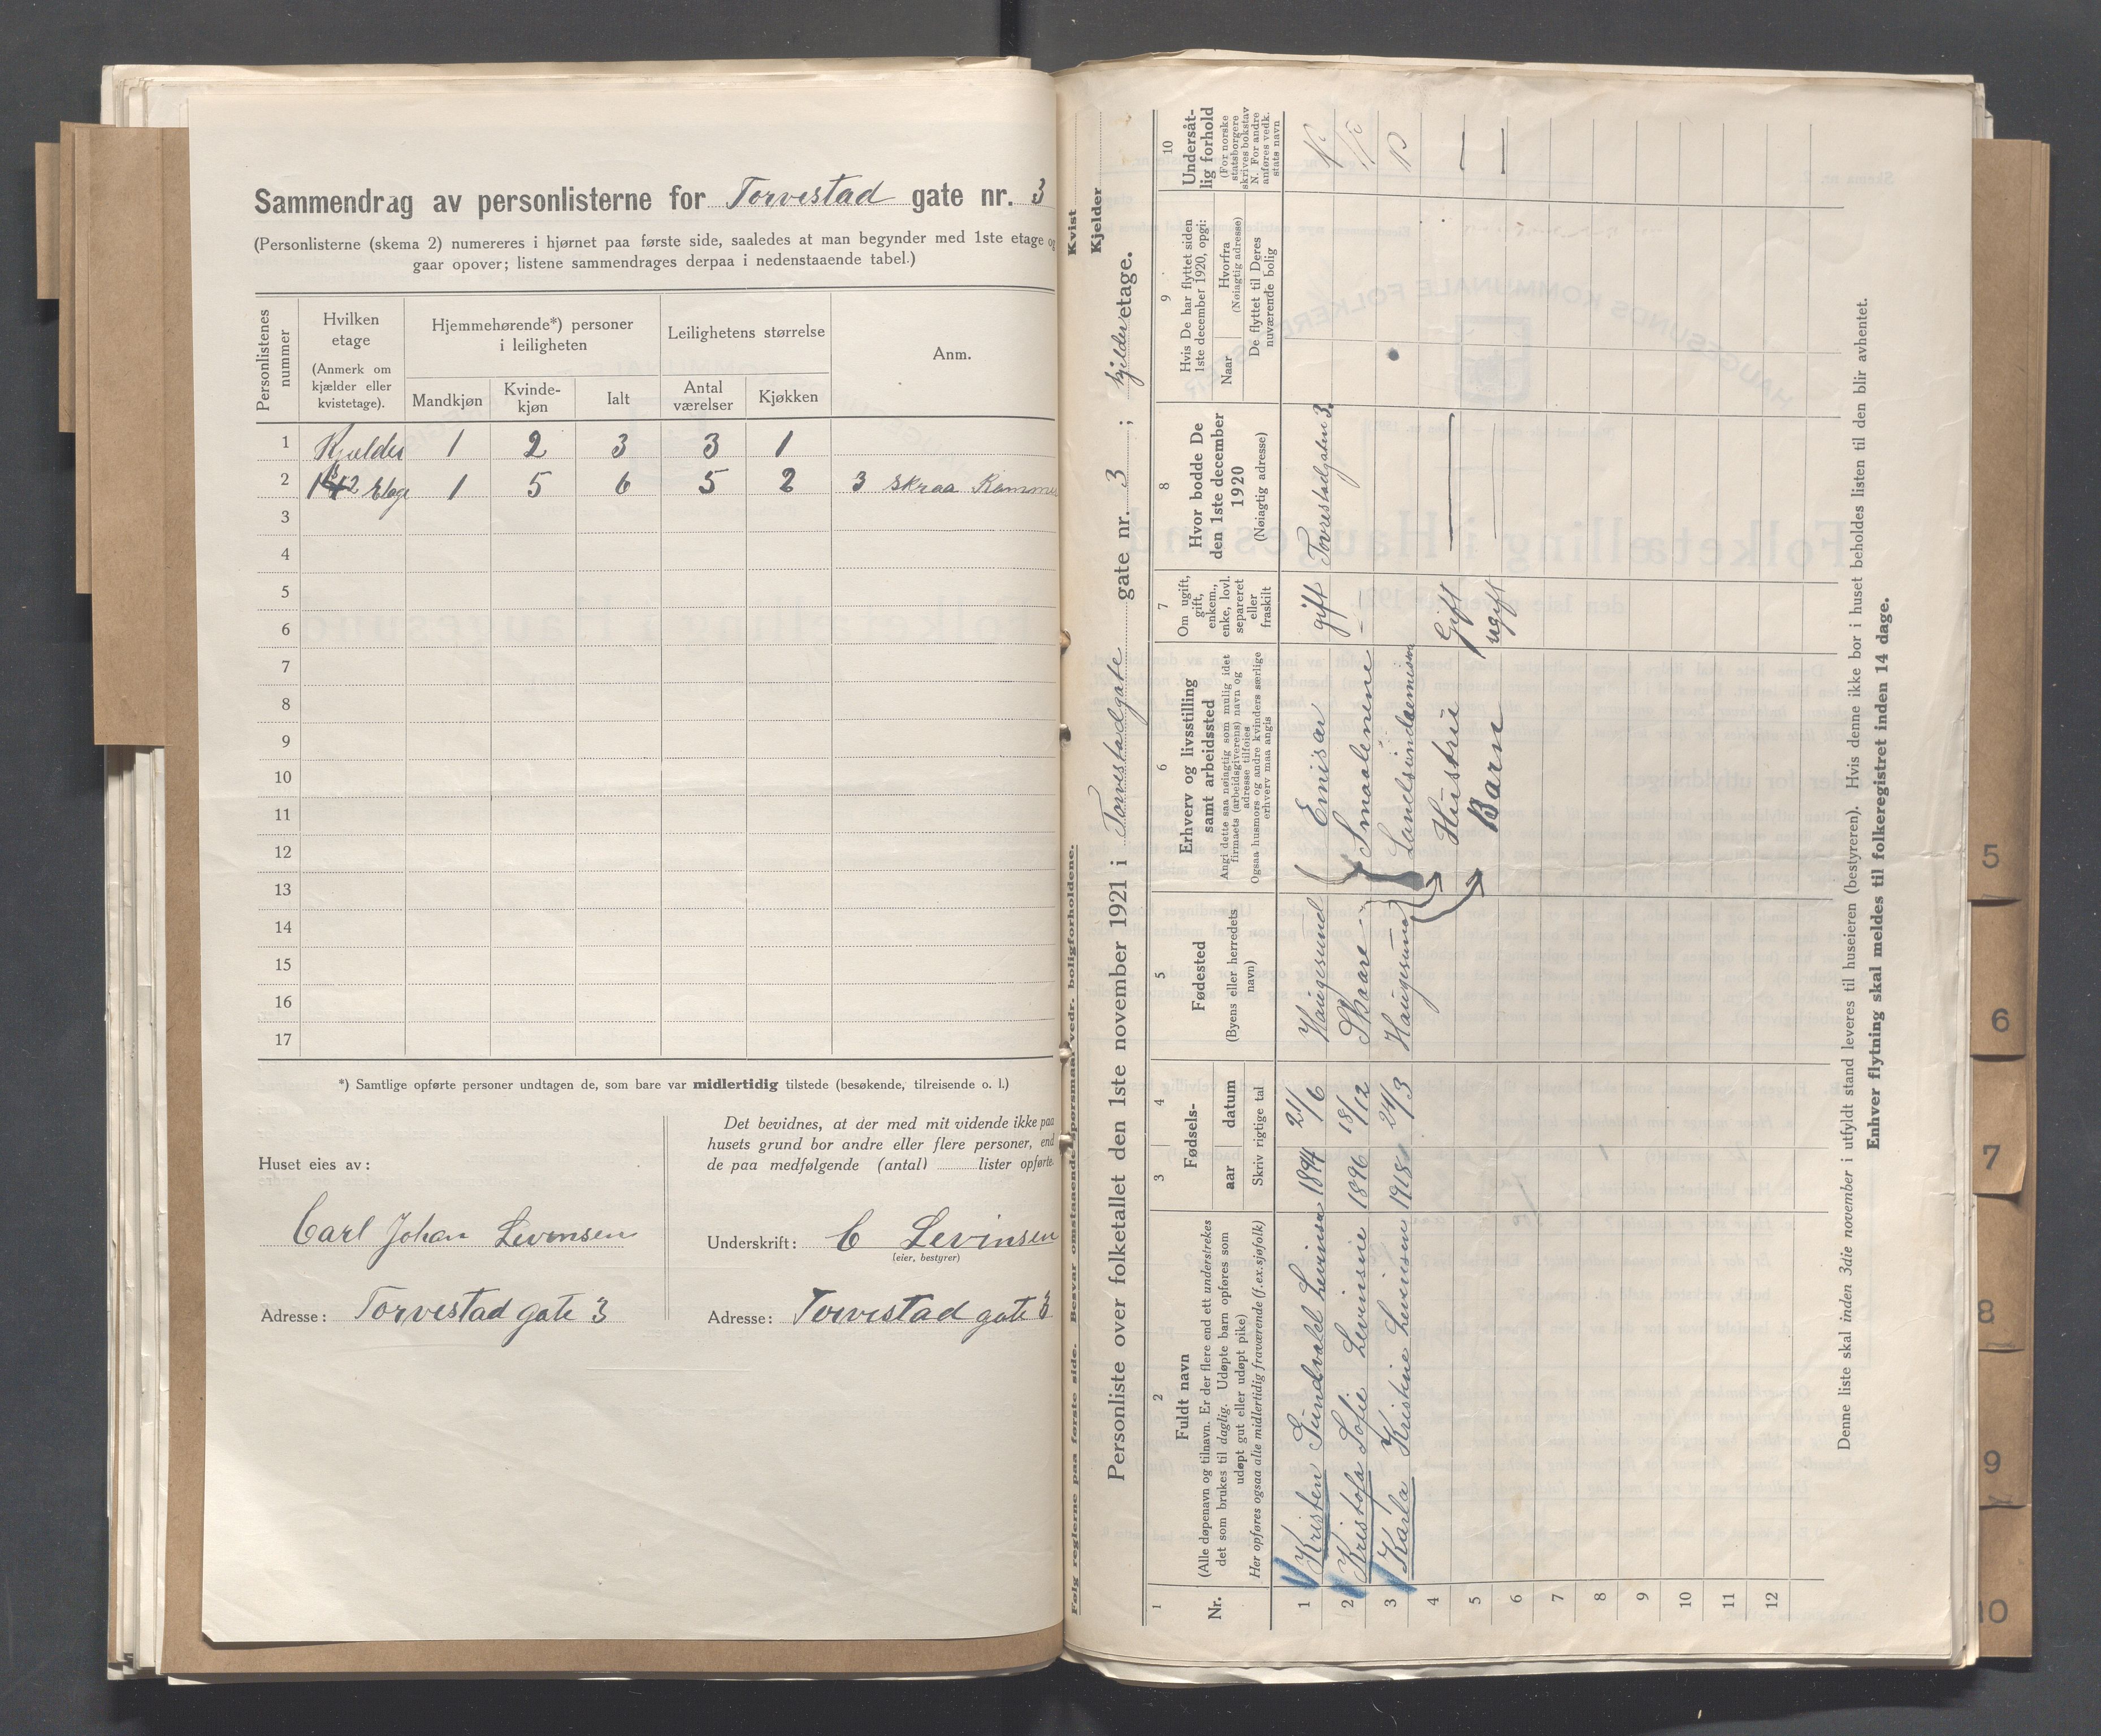 Sammendrag av personlisterne for Torvestad gate nr. 3
(Personlisterne (skema 2) numereres i hjørnet paa første side, saaledes at man begynder med 1ste etage og
gaar opover; listene sammendrages derpaa i nedenstaaende tabel.)
Personlistenes nummer
Hvilken etage
(Anmerk om kjælder eller kvistetage).
Hjemmehørende*) personer i leiligheten
Leilighetens størrelse
Anm.
Mandkjøn
Kvindekjøn
Ialt
Antal værelser
Kjøkken
1 Kjælder 1 2 3 3 1
2 Etage 1 5 6 5 2 3 skraa Kammer
3
4
5
6
7
8
9
10
11
12
13
14
15
16
17
*) Samtlige opførte personer undtagen de, som bare var midlertidig tilstede (besøkende, tilreisende o. l.)
Huset eies av:
Carl Johan Levinsen
Adresse: Torvestad gate 3
Det bevidnes, at der med mit vidende ikke paa
husets grund bor andre eller flere personer, end
de paa medfølgende (antal) lister opførte.
Underskrift: C Levinsen
(eier, bestyrer)
Adresse: Torvestad gate 3
Følg reglerne paa første side. Besvar omstaaende spørsmaal vedr. boligforholdene.
Kvist
Kjelder
Personliste over folketallet den 1ste november 1921 i Torvestadgate gate nr. 3 ; kjelder etage.
1
Nr.
2
Fuldt navn
(Alle døpenavn og tilnavn. Er der flere end ett understrekes
det som brukes til daglig. Udøpte barn opføres som
udøpt gut eller udøpt pike)
Her opføres ogsaa alle midlertidig fraværende (f.ex. sjøfolk)
3
4
Fødsels-
aar
datum
Skriv rigtige tal
5
Fødested
(Byens eller herredets navn)
6
Erhverv og livsstilling
samt arbeidssted
Angi dette saa nøiagtig som mulig idet
firmaets (arbeidsgiverens) navn og
adresse tilføies
Ogsaa husmors og andre kvinders særlige
erhverv maa angis
7
Om ugift, gift, enkem., enke, lovl. separeret eller fraskilt
8
Hvor bodde De
den 1ste december
1920
(Nøiagtig adresse)
9
Hvis De har flyttet siden
1ste december 1920, opgi:
Naar
Hvorfra
(Nøiagtig adresse)
De flyttet til Deres
nuværende bolig
10
Undersåtlig forhold
(For norske
statsborgere
skrives bokstav
N. For andre
anføres vedk.
stats navn
1 Kristen Sundvald Levinsen 1894 21/6 Haugesund gift Torvestadgaten 3.
2 Kristofa Sofie Levinsen 1896 18/12 Skaare
3 Karla Kristine Levinsen 1918 24/3 Haugesund
4 Hustru Gift
5 Barn ugift
6
7
8
9
10
11
12
Denne liste skal inden 3die november i utfyldt stand leveres til huseieren (bestyreren). Hvis denne ikke bor i huset beholdes listen til den blir avhentet.
Enhver flytning skal meldes til folkeregistret inden 14 dage.
5
6
7
8
9
10